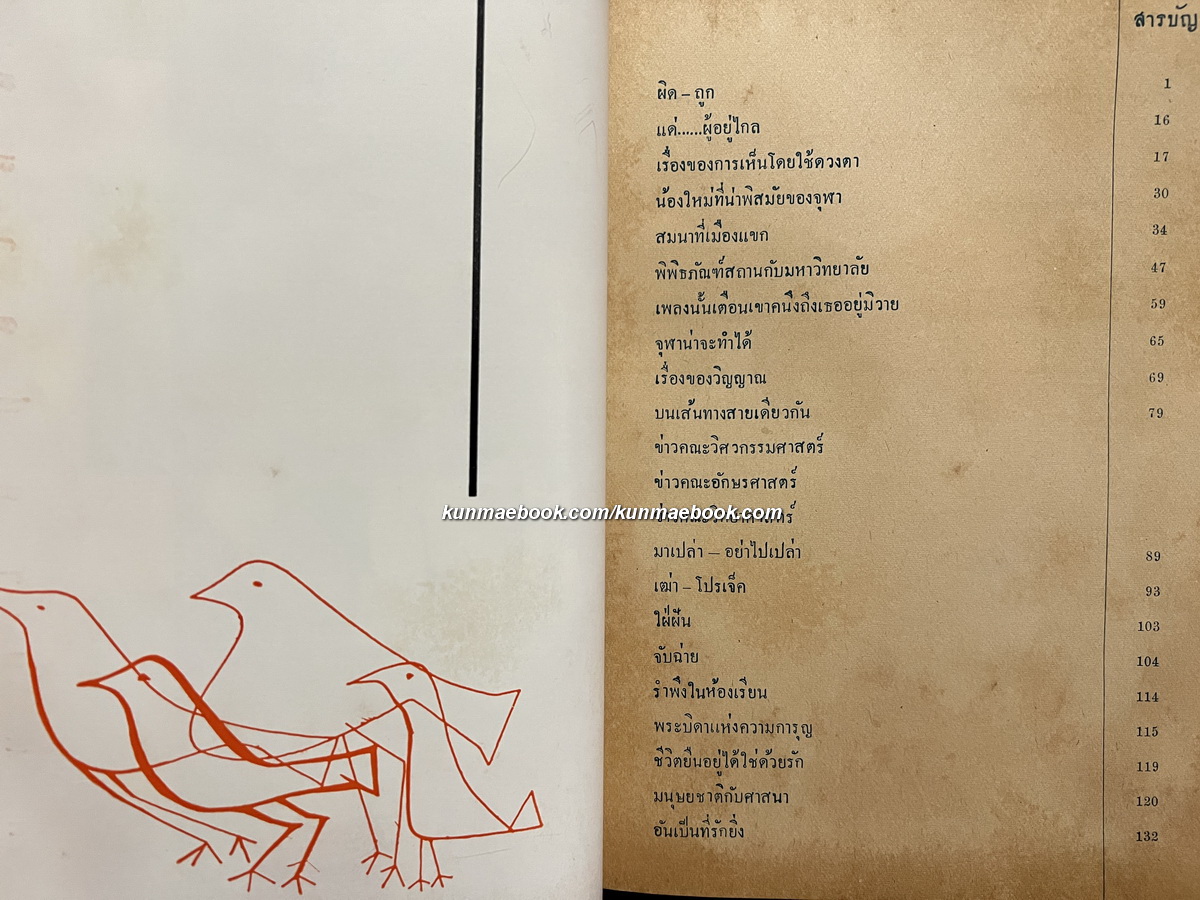 สารบัญ
ผิด – ถูก 1
แด่......ผู้อยู่ไกล 16
เรื่องของการเห็นโดยใช้ดวงตา 17
น้องใหม่ที่น่าพิสมัยของจุฬา 30
สมนาที่เมืองแขก 34
พิพิธภัณฑ์สถานกับมหาวิทยาลัย 47
เพลงนั้นเตือนเขาคนึงถึงเธออยู่มิวาย 59
จุฬาน่าจะทำได้ 65
เรื่องของวิญญาณ 69
บนเส้นทางสายเดียวกัน 79
ข่าวคณะวิศวกรรมศาสตร์
ข่าวคณะอักษรศาสตร์
kunmaebook.com/kunmaebook.com
ข่าวคณะวิทยาศาสตร์
มาเปล่า – อย่าไปเปล่า 89
เฒ่า – โปรเจ็ค 93
ใฝ่ฝัน 103
จับฉ่าย 104
รำพึงในห้องเรียน 114
พระบิดาแห่งความการุญ 115
ชีวิตยืนอยู่ได้ใช่ด้วยรัก 119
มนุษยชาติกับศาสนา 120
อันเป็นที่รักยิ่ง 132